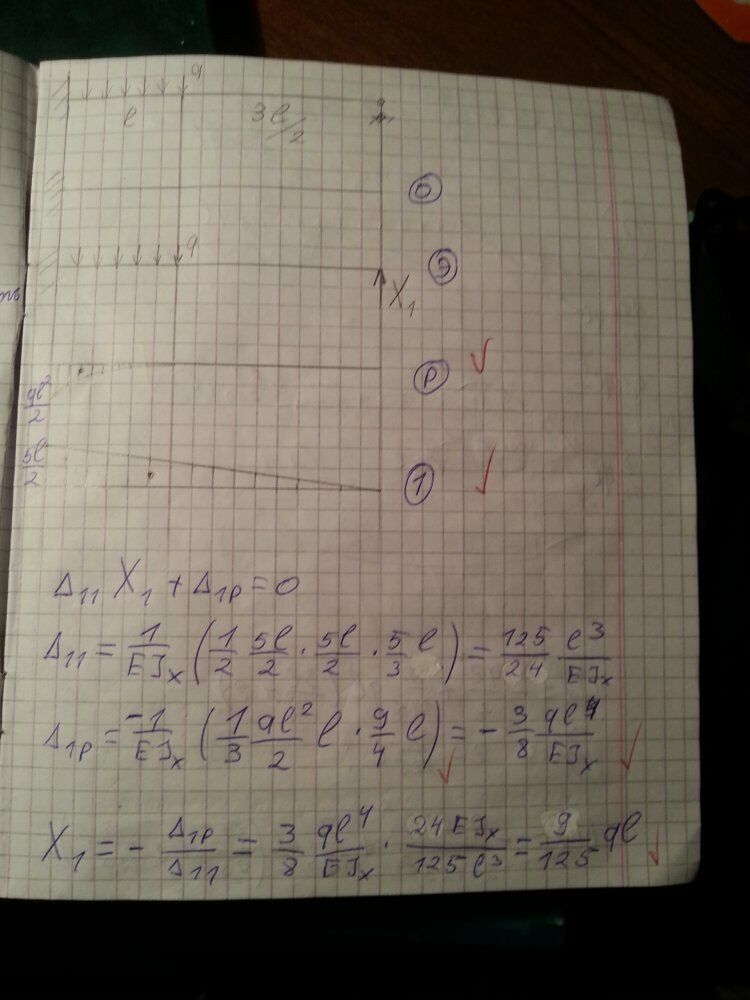 q
l 3l/2
0
q Э
X₁
P
ql²/2
5l/2
1
Δ₁₁ X₁ + Δ₁P = 0
Δ₁₁ = 1/EJₓ (1/2 5l/2 · 5l/2 · 5/3 l) = 125/24 l³/EJₓ
Δ₁P = -1/EJₓ (1/3 ql²/2 l · 9/4 l) = - 3/8 ql⁴/EJₓ
X₁ = - Δ₁P/Δ₁₁ = 3/8 ql⁴/EJₓ · 24EJₓ/125l³ = 9/125 ql